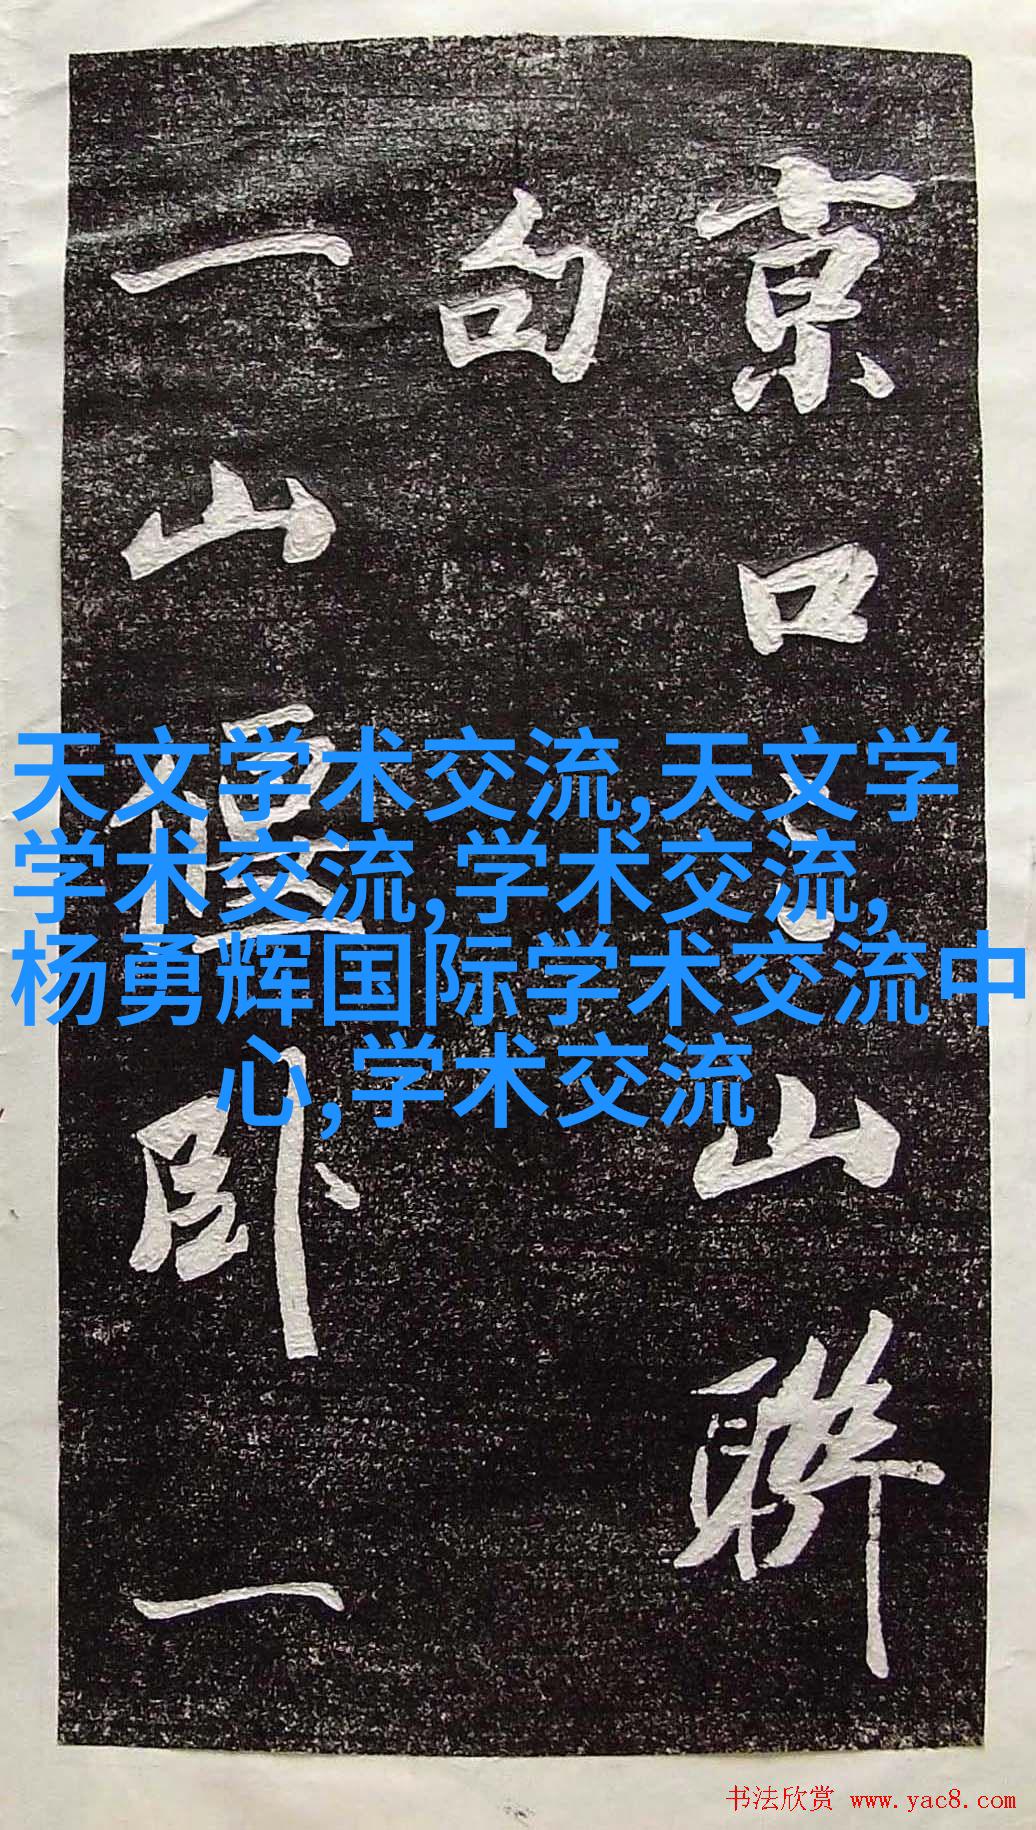 京口山聯
句
一山偃卧一
天文学术交流,天文学
学术交流,学术交流,
杨勇辉国际学术交流中
心,学术交流
书法欣赏 www.yac8.com